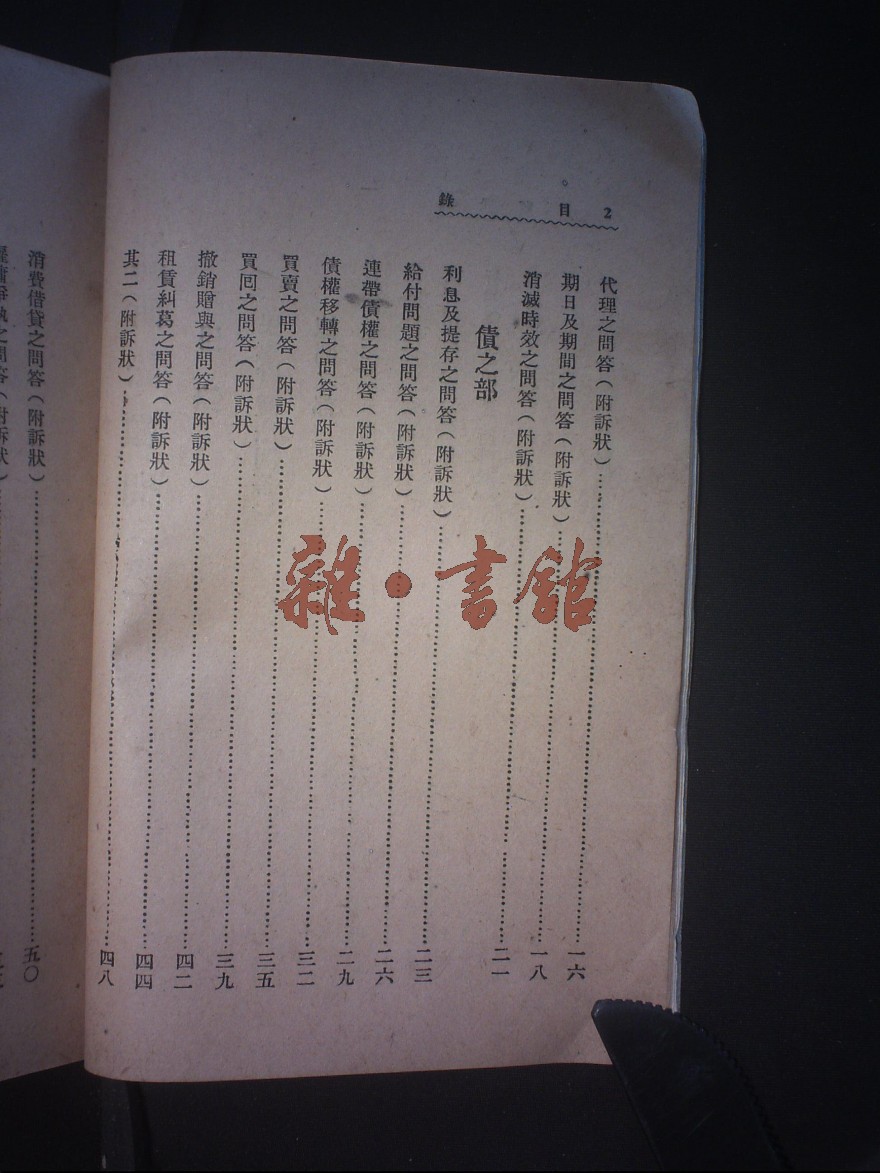 2 目錄
代理之問答(附訴狀)……一六
期日及期間之問答(附訴狀)……一八
消滅時效之問答(附訴狀)……二一
債之部
利息及提存之問答(附訴狀)……二三
給付問題之問答(附訴狀)……二六
連帶債權之問答(附訴狀)……二九
債權移轉之問答(附訴狀)……三二
買賣之問答(附訴狀)……三五
買囘之問答(附訴狀)……三九
撤銷贈與之問答(附訴狀)……四二
租賃糾葛之問答(附訴狀)……四四
其二(附訴狀)……四八
消費借貸之問答(附訴狀)……五〇
之問答(附訴狀)
雜·書館